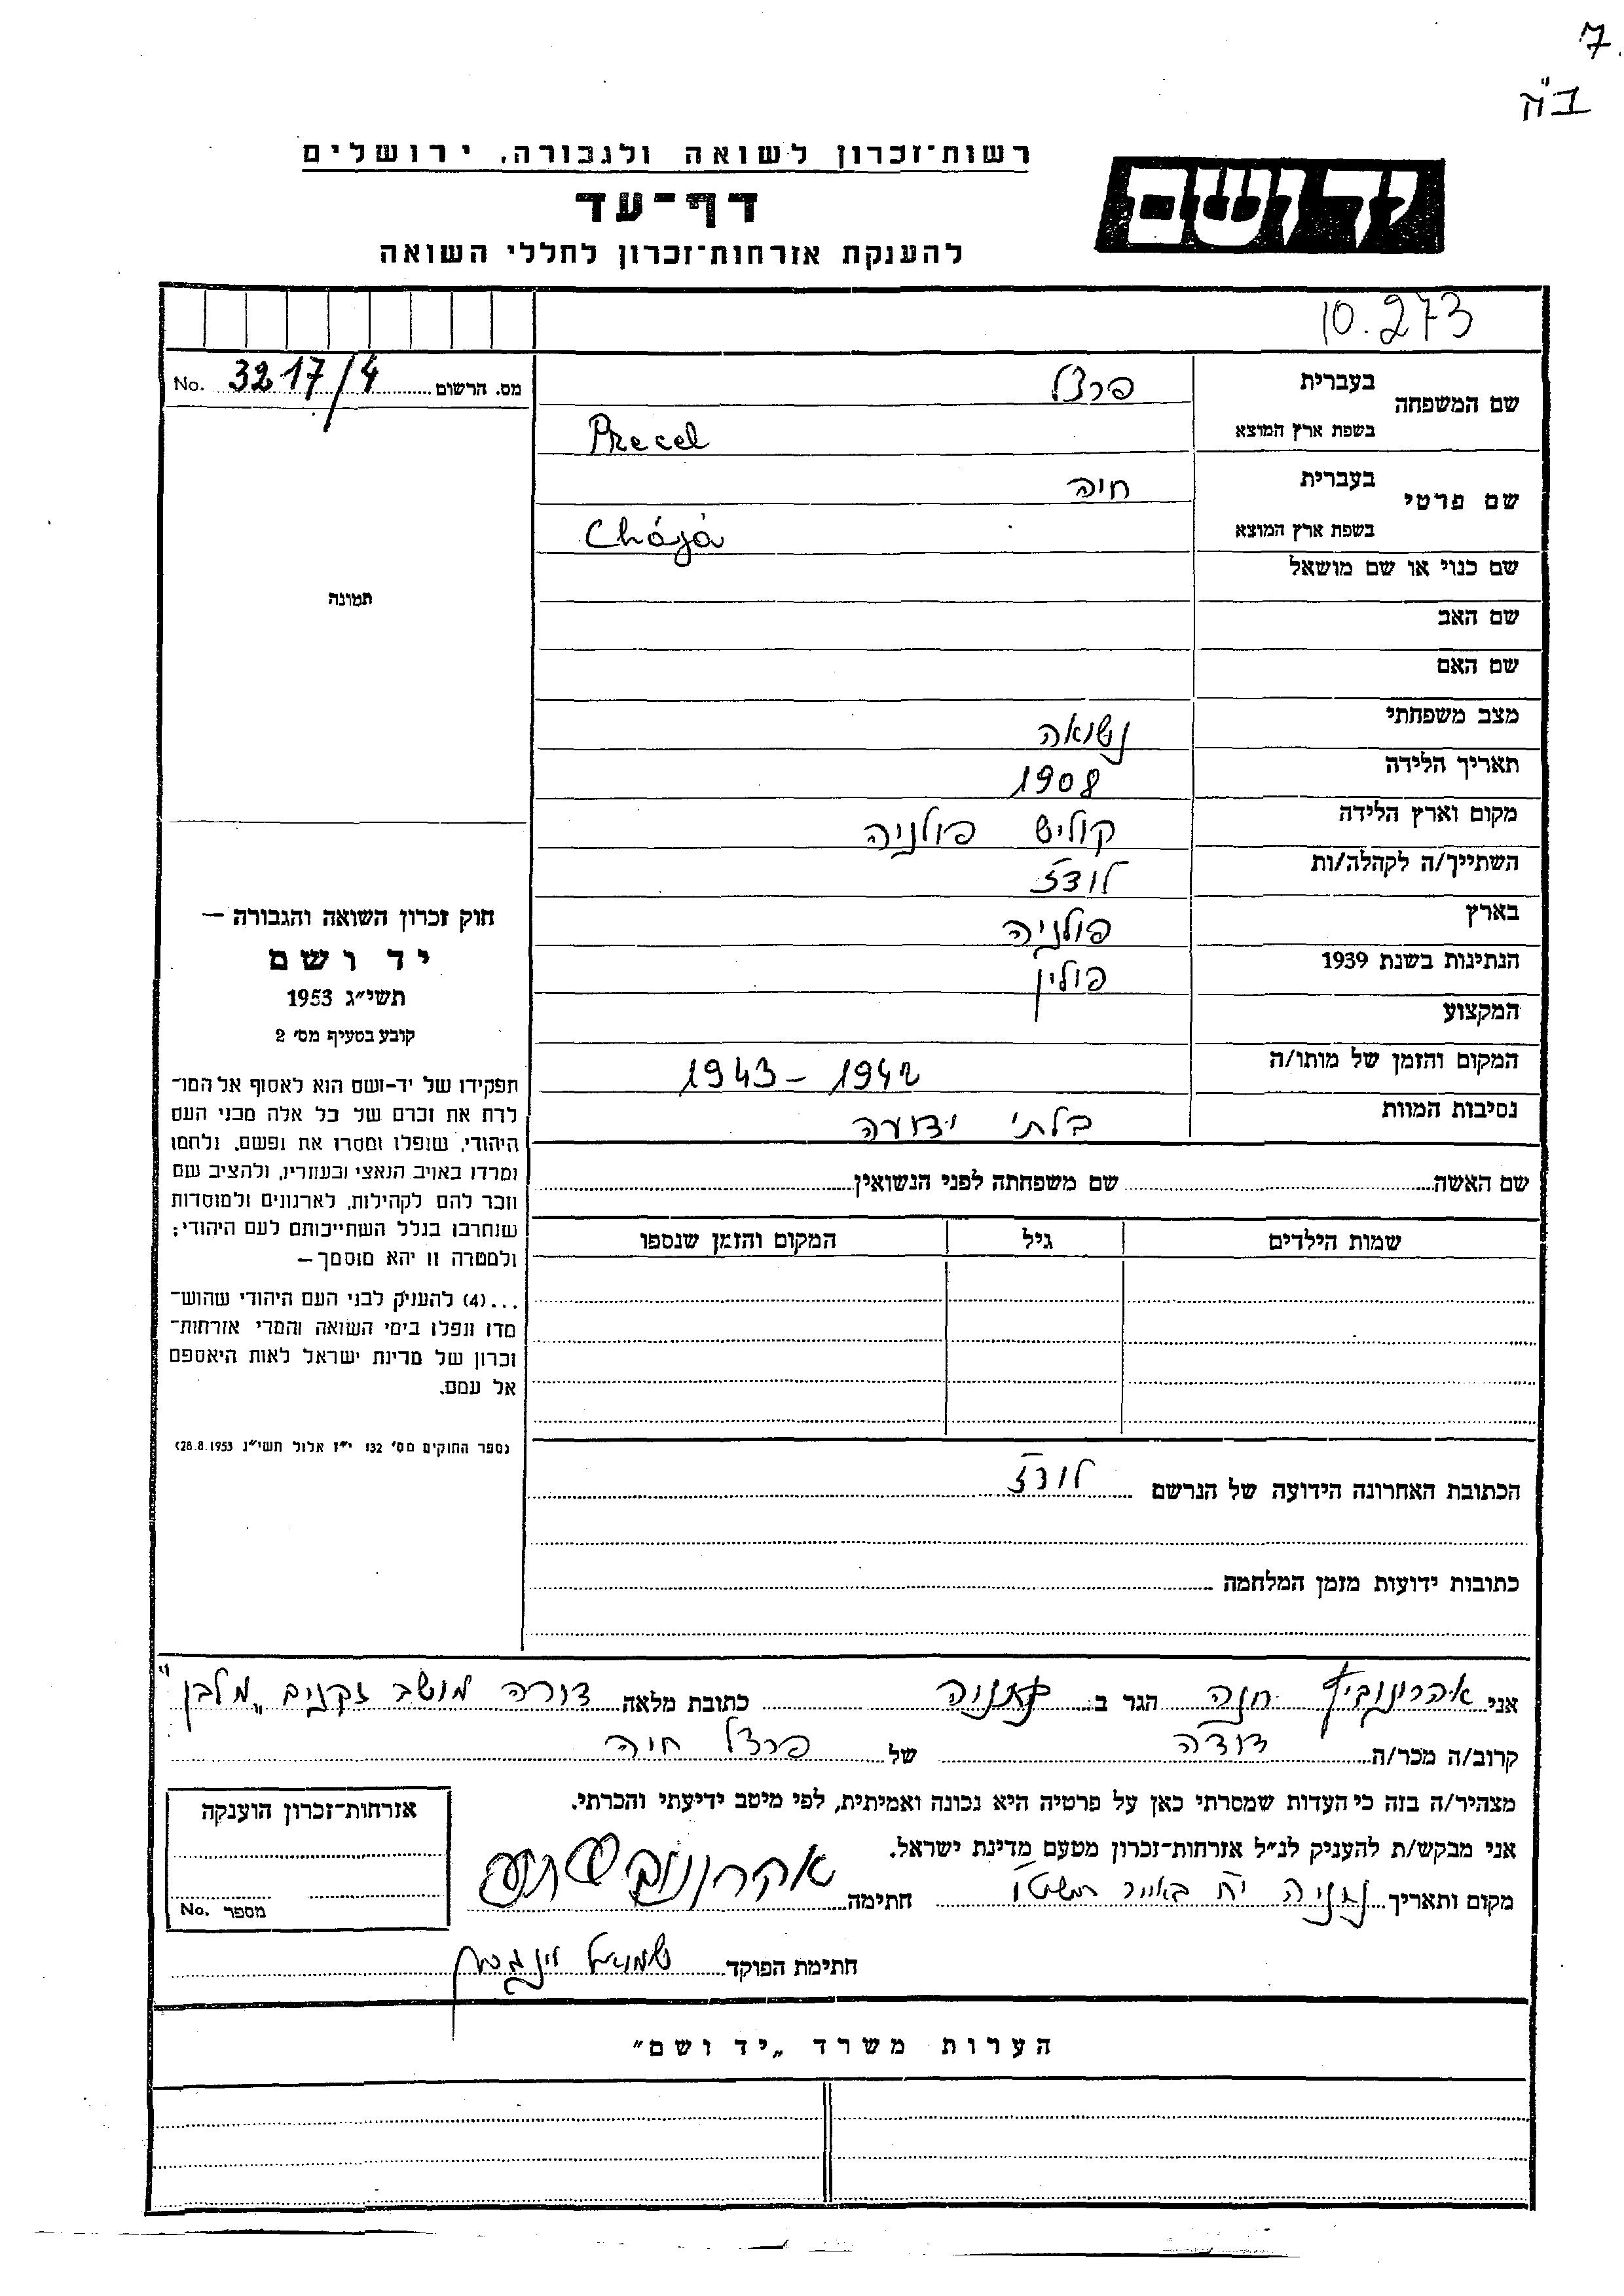 7.
ב"ה
יד ושם
רשות־זכרון לשואה ולגבורה, ירושלים
דף־עד
להענקת אזרחות־זכרון לחללי השואה
10.273
מס. הרשום 3217/4 No.
שם המשפחה
בעברית פרצל
בשפת ארץ המוצא Precel
שם פרטי
בעברית חיה
בשפת ארץ המוצא Chájá
שם כנוי או שם מושאל
שם האב
שם האם
מצב משפחתי נשואה
תאריך הלידה 1908
מקום וארץ הלידה קוליש פולניה
השתייך/ה לקהלה/ות לודז
בארץ פולניה
הנתינות בשנת 1939 פולין
המקצוע
המקום והזמן של מותו/ה 1942 - 1943
נסיבות המוות בלתי ידועה
שם האשה שם משפחתה לפני הנשואין
שמות הילדים גיל המקום והזמן שנספו
הכתובת האחרונה הידועה של הנרשם לודז
כתובות ידועות מזמן המלחמה
תמונה
חוק זכרון השואה והגבורה —
יד ושם
תשי״ג 1953
קובע בסעיף מס׳ 2
תפקידו של יד-ושם הוא לאסוף אל המו־
לדת את זכרם של כל אלה מבני העם
היהודי, שנפלו ומסרו את נפשם, נלחמו
ומרדו באויב הנאצי ובעוזריו, ולהציב שם
וזכר להם לקהילות, לארגונים ולמוסדות
שנחרבו בגלל השתייכותם לעם היהודי;
ולמטרה זו יהא מוסמך —
...(4) להעניק לבני העם היהודי שהוש־
מדו ונפלו בימי השואה והמרי אזרחות־
זכרון של מדינת ישראל לאות היאספם
אל עמם.
(ספר החוקים מס׳ 132 י״ז אלול תשי״ג 28.8.1953)
אני אהרונוביץ חנה הגר ב נתניה כתובת מלאה דורה מושב זקנים „מלבן"
קרוב/ה מכר/ה דודה של פרצל חיה
מצהיר/ה בזה כי העדות שמסרתי כאן על פרטיה היא נכונה ואמיתית, לפי מיטב ידיעתי והכרתי.
אני מבקש/ת להעניק לנ״ל אזרחות־זכרון מטעם מדינת ישראל.
מקום ותאריך נתניה יח באייר תשטו חתימה
חתימת הפוקד שמואל
אזרחות־זכרון הוענקה
מספר No.
הערות משרד „יד ושם״